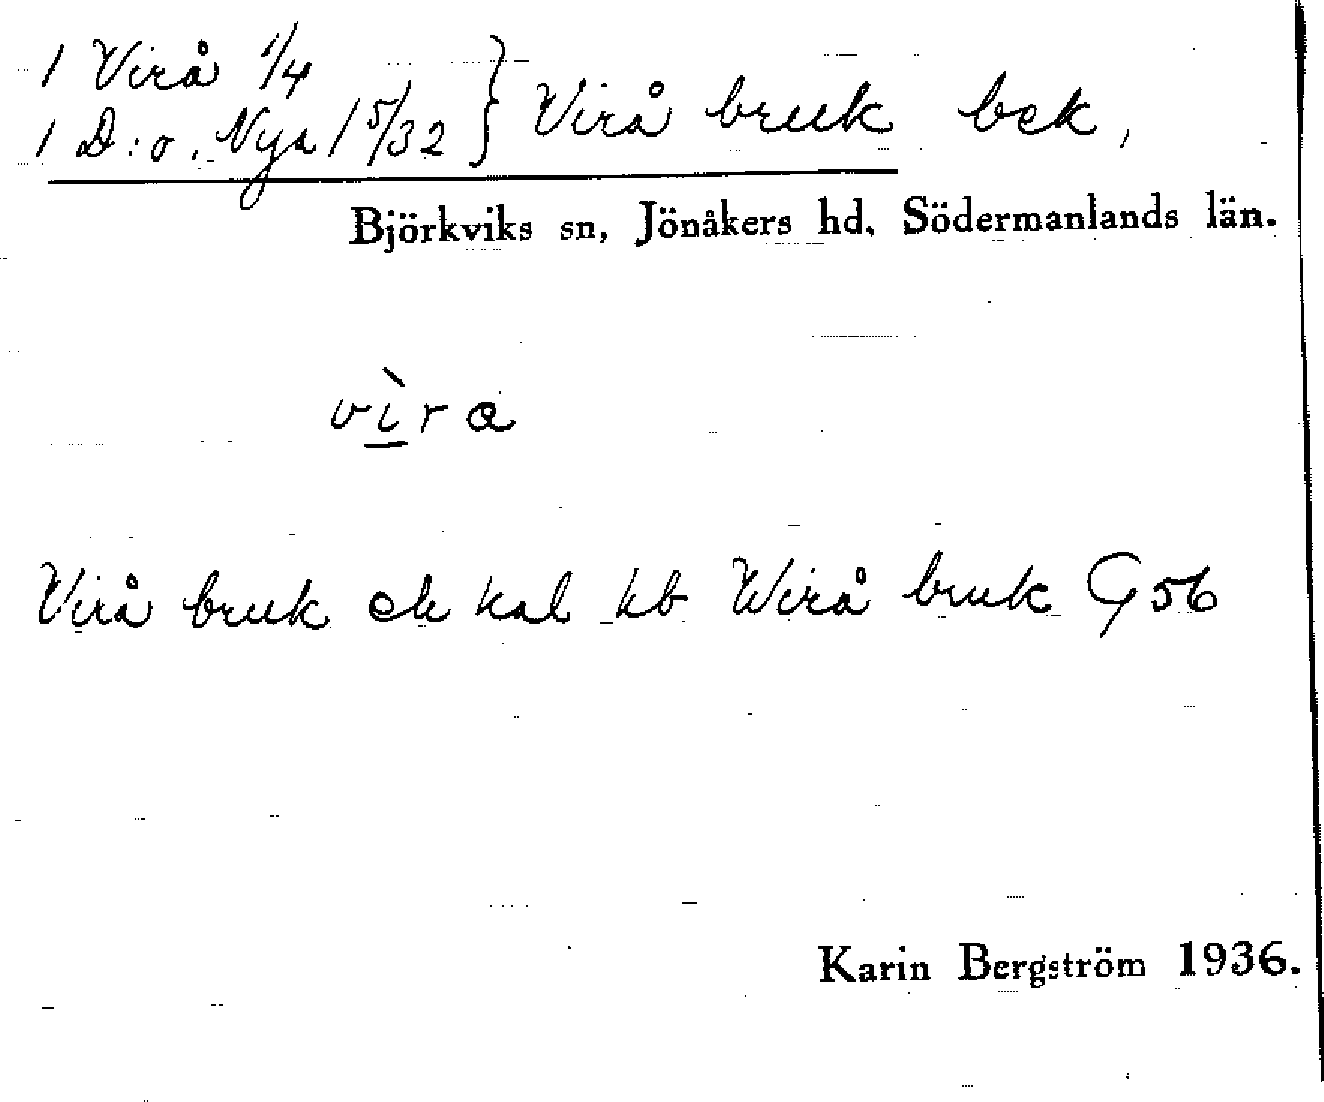 1 Virå 1/4
1 D:o. Nya 1 5/32 } Virå bruk bek,
Björkviks sn, Jönåkers hd, Södermanlands län.
vìra
Virå bruk ek kal kb Wirå bruk G 56
Karin Bergström 1936.